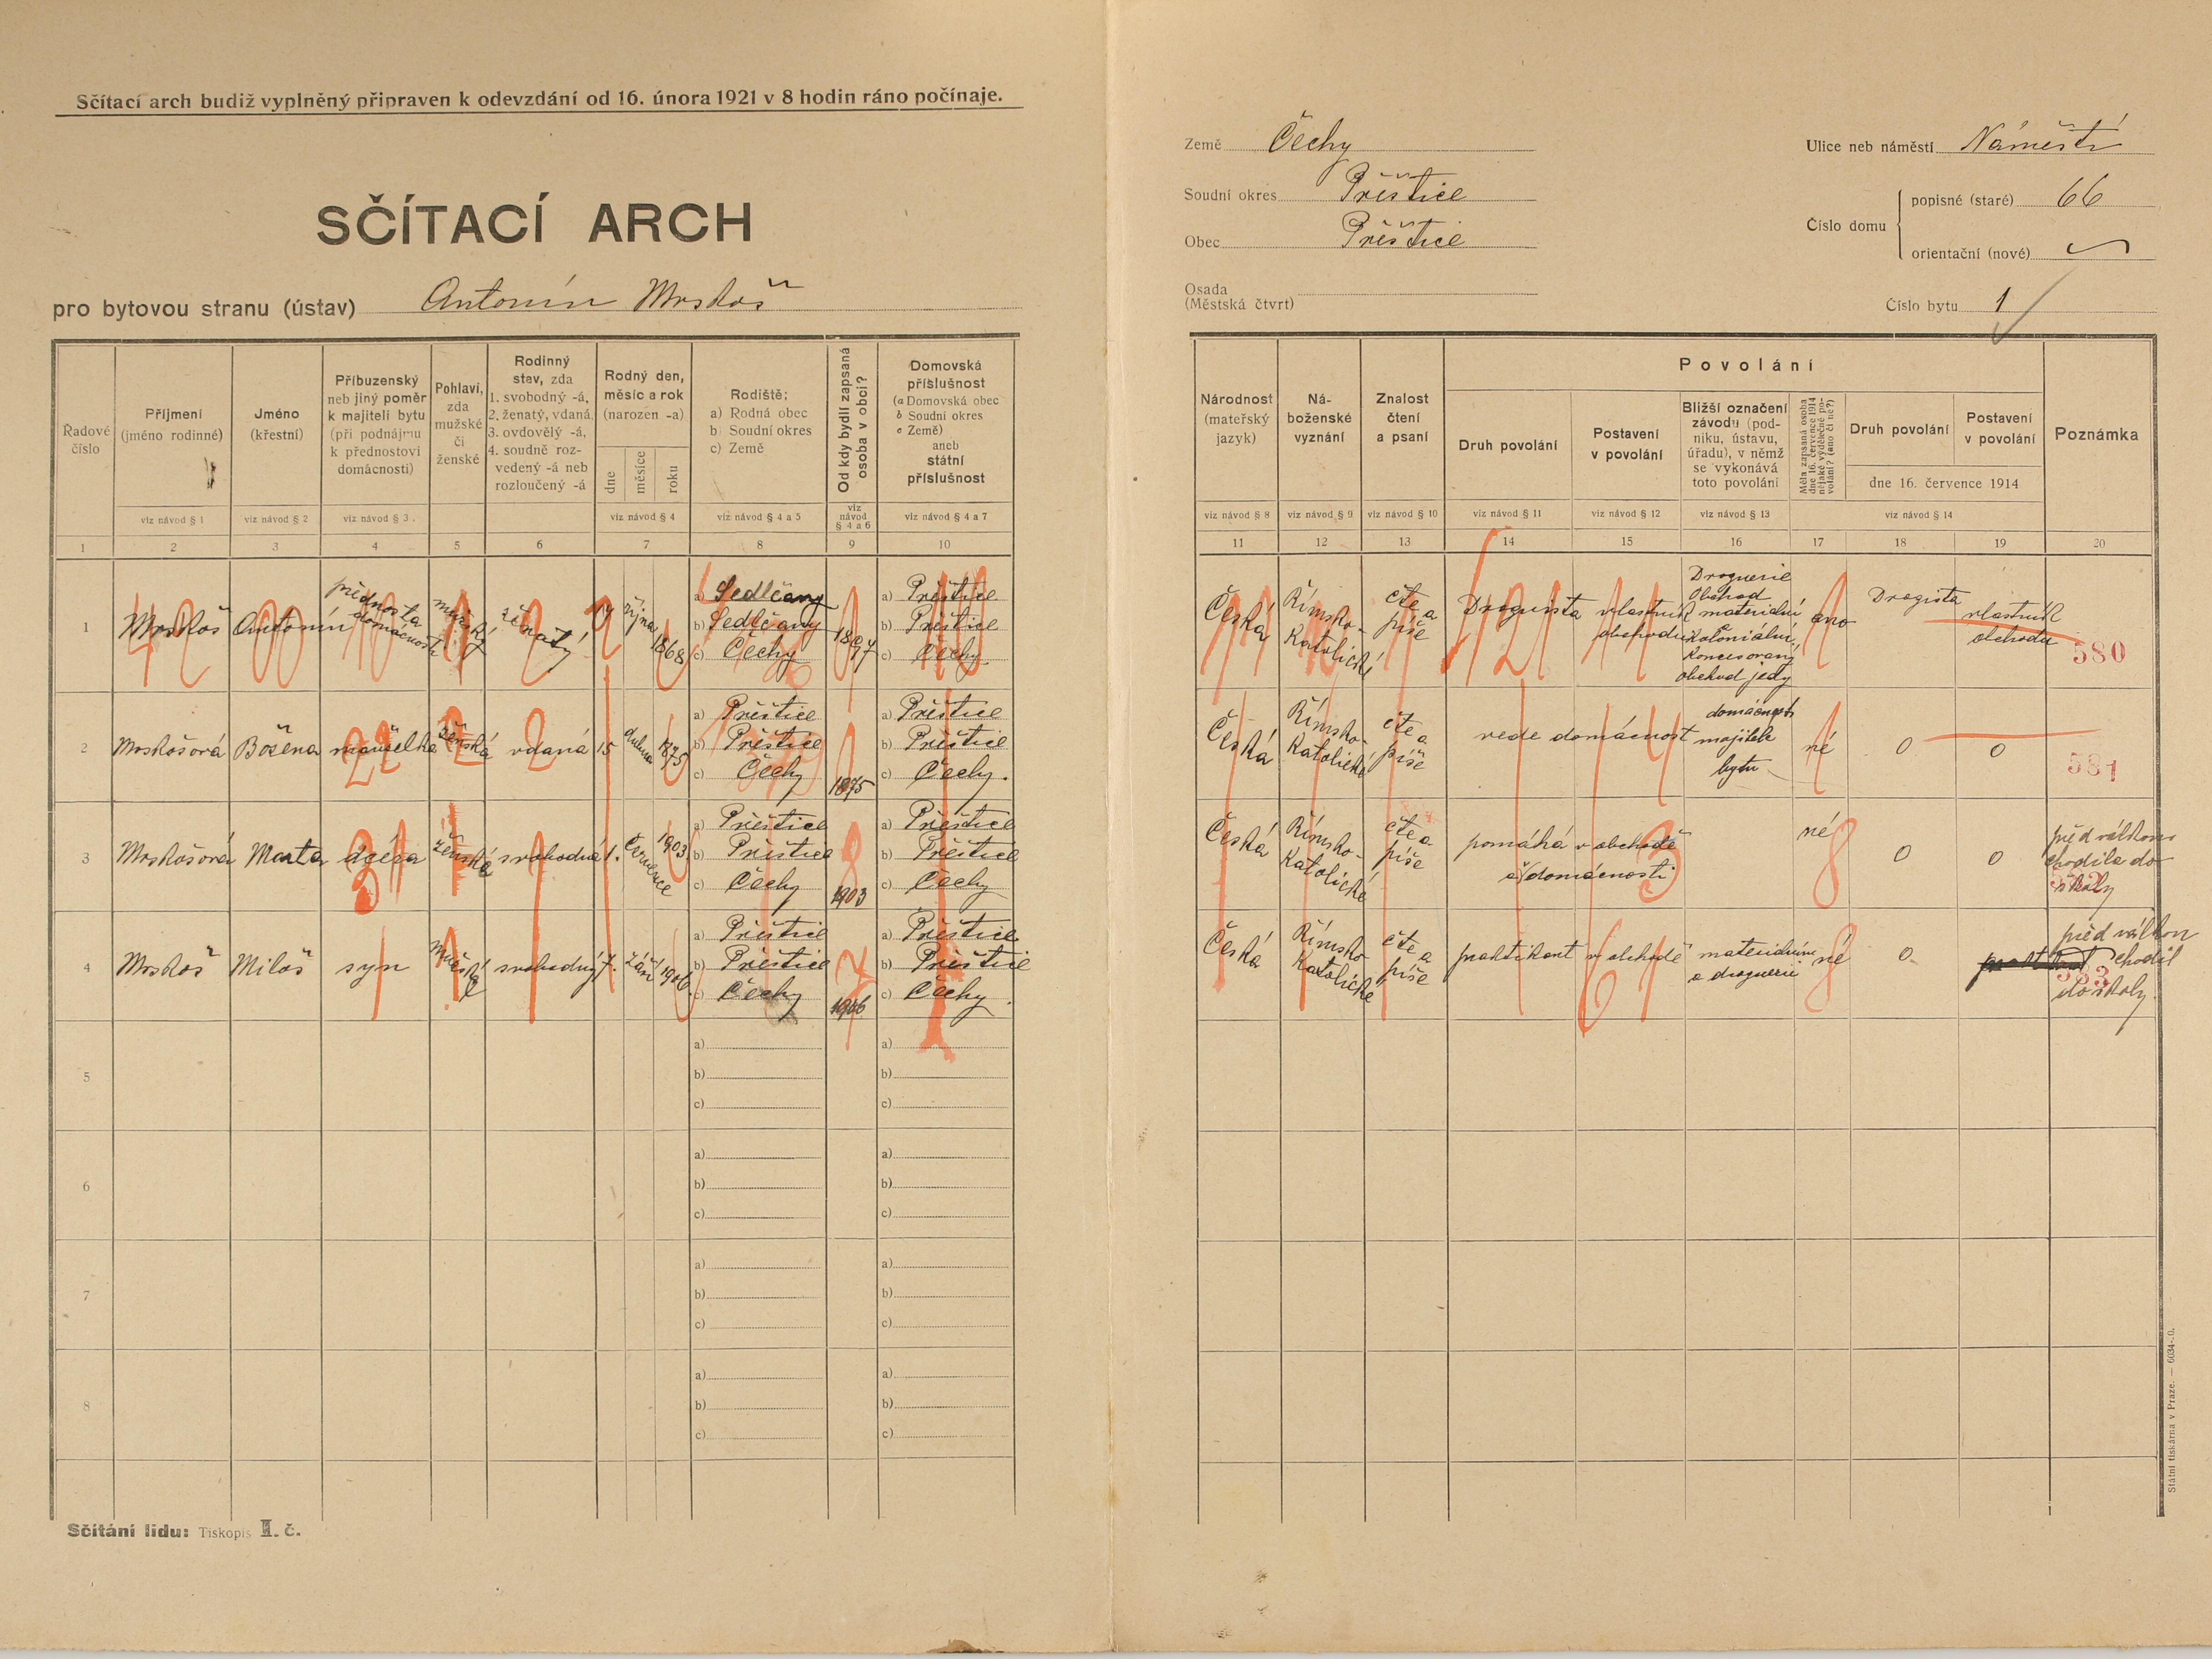 Sčítací arch budiž vyplněný připraven k odevzdání od 16. února 1921 v 8 hodin ráno počínaje.
SČÍTACÍ ARCH
pro bytovou stranu (ústav) Antonín Mrskoš
Země Čechy
Soudní okres Přeštice
Obec Přeštice
Osada
(Městská čtvrt)
Ulice neb náměstí Náměstí
Číslo domu
popisné (staré) 66
orientační (nové)
Číslo bytu 1
Řadové
číslo
Příjmení
(jméno rodinné)
viz návod § 1
Jméno
(křestní)
viz návod § 2
Příbuzenský
neb jiný poměr
k majiteli bytu
(při podnájmu
k přednostovi
domácnosti)
viz návod § 3.
Pohlaví,
zda
mužské
či
ženské
Rodinný
stav, zda
1. svobodný -á,
2. ženatý, vdaná,
3. ovdovělý -á,
4. soudně roz-
vedený -á neb
rozloučený -á
Rodný den,
měsíc a rok
(narozen -a)
dne
měsíce
roku
viz návod § 4
Rodiště:
a) Rodná obec
b) Soudní okres
c) Země
viz návod § 4 a 5
Od kdy bydlí zapsaná
osoba v obci?
viz
návod
§ 4 a 6
Domovská
příslušnost
(a Domovská obec
b Soudní okres
c Země)
aneb
státní
příslušnost
viz návod § 4 a 7
1 2 3 4 5 6 7 8 9 10
Národnost
(mateřský
jazyk)
viz návod § 8
Ná-
boženské
vyznání
viz návod § 9
Znalost
čtení
a psaní
viz návod § 10
Povolání
Druh povolání
viz návod § 11
Postavení
v povolání
viz návod § 12
Bližší označení
závodu (pod-
niku, ústavu,
úřadu), v němž
se vykonává
toto povolání
viz návod § 13
Měla zapsaná osoba
dne 16. července 1914
nějaké výdělečné po-
volání? (ano či ne?)
Druh povolání
Postavení
v povolání
dne 16. července 1914
viz návod § 14
Poznámka
11 12 13 14 15 16 17 18 19 20
1 Mrskoš Antonín
přednosta
domácnosti
mužský
ženatý
října
1868
a) Sedlčany
b) Sedlčany
c) Čechy
1897
a) Přeštice
b) Přeštice
c) Čechy.
Česká
Římsko-
Katolické
čte a
píše
Droguista
vlastník
obchodu
Droguerie
Obchod
materialní
Koloniální,
Koncesovaný
obchod jedy
ano
Drogista
vlastník
obchodu
580
2 Mrskošová Božena manželka ženská vdaná 15 dubna 1875
a) Přeštice
b) Přeštice
c) Čechy
1875
a) Přeštice
b) Přeštice
c) Čechy.
Česká
Římsko-
Katolické
čte a
píše
vede domácnost
domácnost
majitele
bytu
né
0
0
581
3 Mrskošová Marta dcera ženská svobodná 1. července 1903
a) Přeštice
b) Přeštice
c) Čechy
1903
a) Přeštice
b) Přeštice
c) Čechy
Česká
Římsko-
Katolické
čte a
píše
pomáhá v obchodě
a domácnosti
né
0
0
před válkou
chodila do
školy
4 Mrskoš Miloš syn mužské svobodný 7. září 1906
a) Přeštice
b) Přeštice
c) Čechy
1906
a) Přeštice
b) Přeštice
c) Čechy.
Česká
Římsko-
Katolické
čte a
píše
praktikant v obchodě
materialním
a droguerii
né
0
před válkou
chodil
do školy.
583
5
a)
b)
c)
a)
b)
c)
6
a)
b)
c)
a)
b)
c)
7
a)
b)
c)
a)
b)
c)
8
a)
b)
c)
a)
b)
c)
Sčítání lidu: Tiskopis I. č.
Státní tiskárna v Praze. — 6034-20.